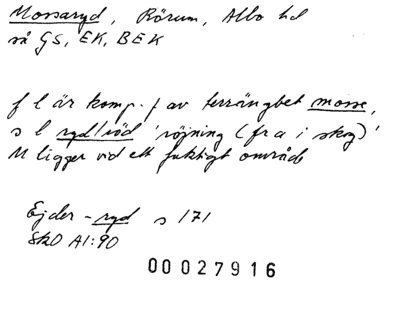 Mossaryd, Rörum, Albo hd
så GS, EK, BEK
f l är komp. f av terrängbet mosse,
s l ryd/röd 'röjning (fr a i skog)'
M ligger vid ett fuktigt område
Ejder - ryd s 171
SkO A1:90
00027916